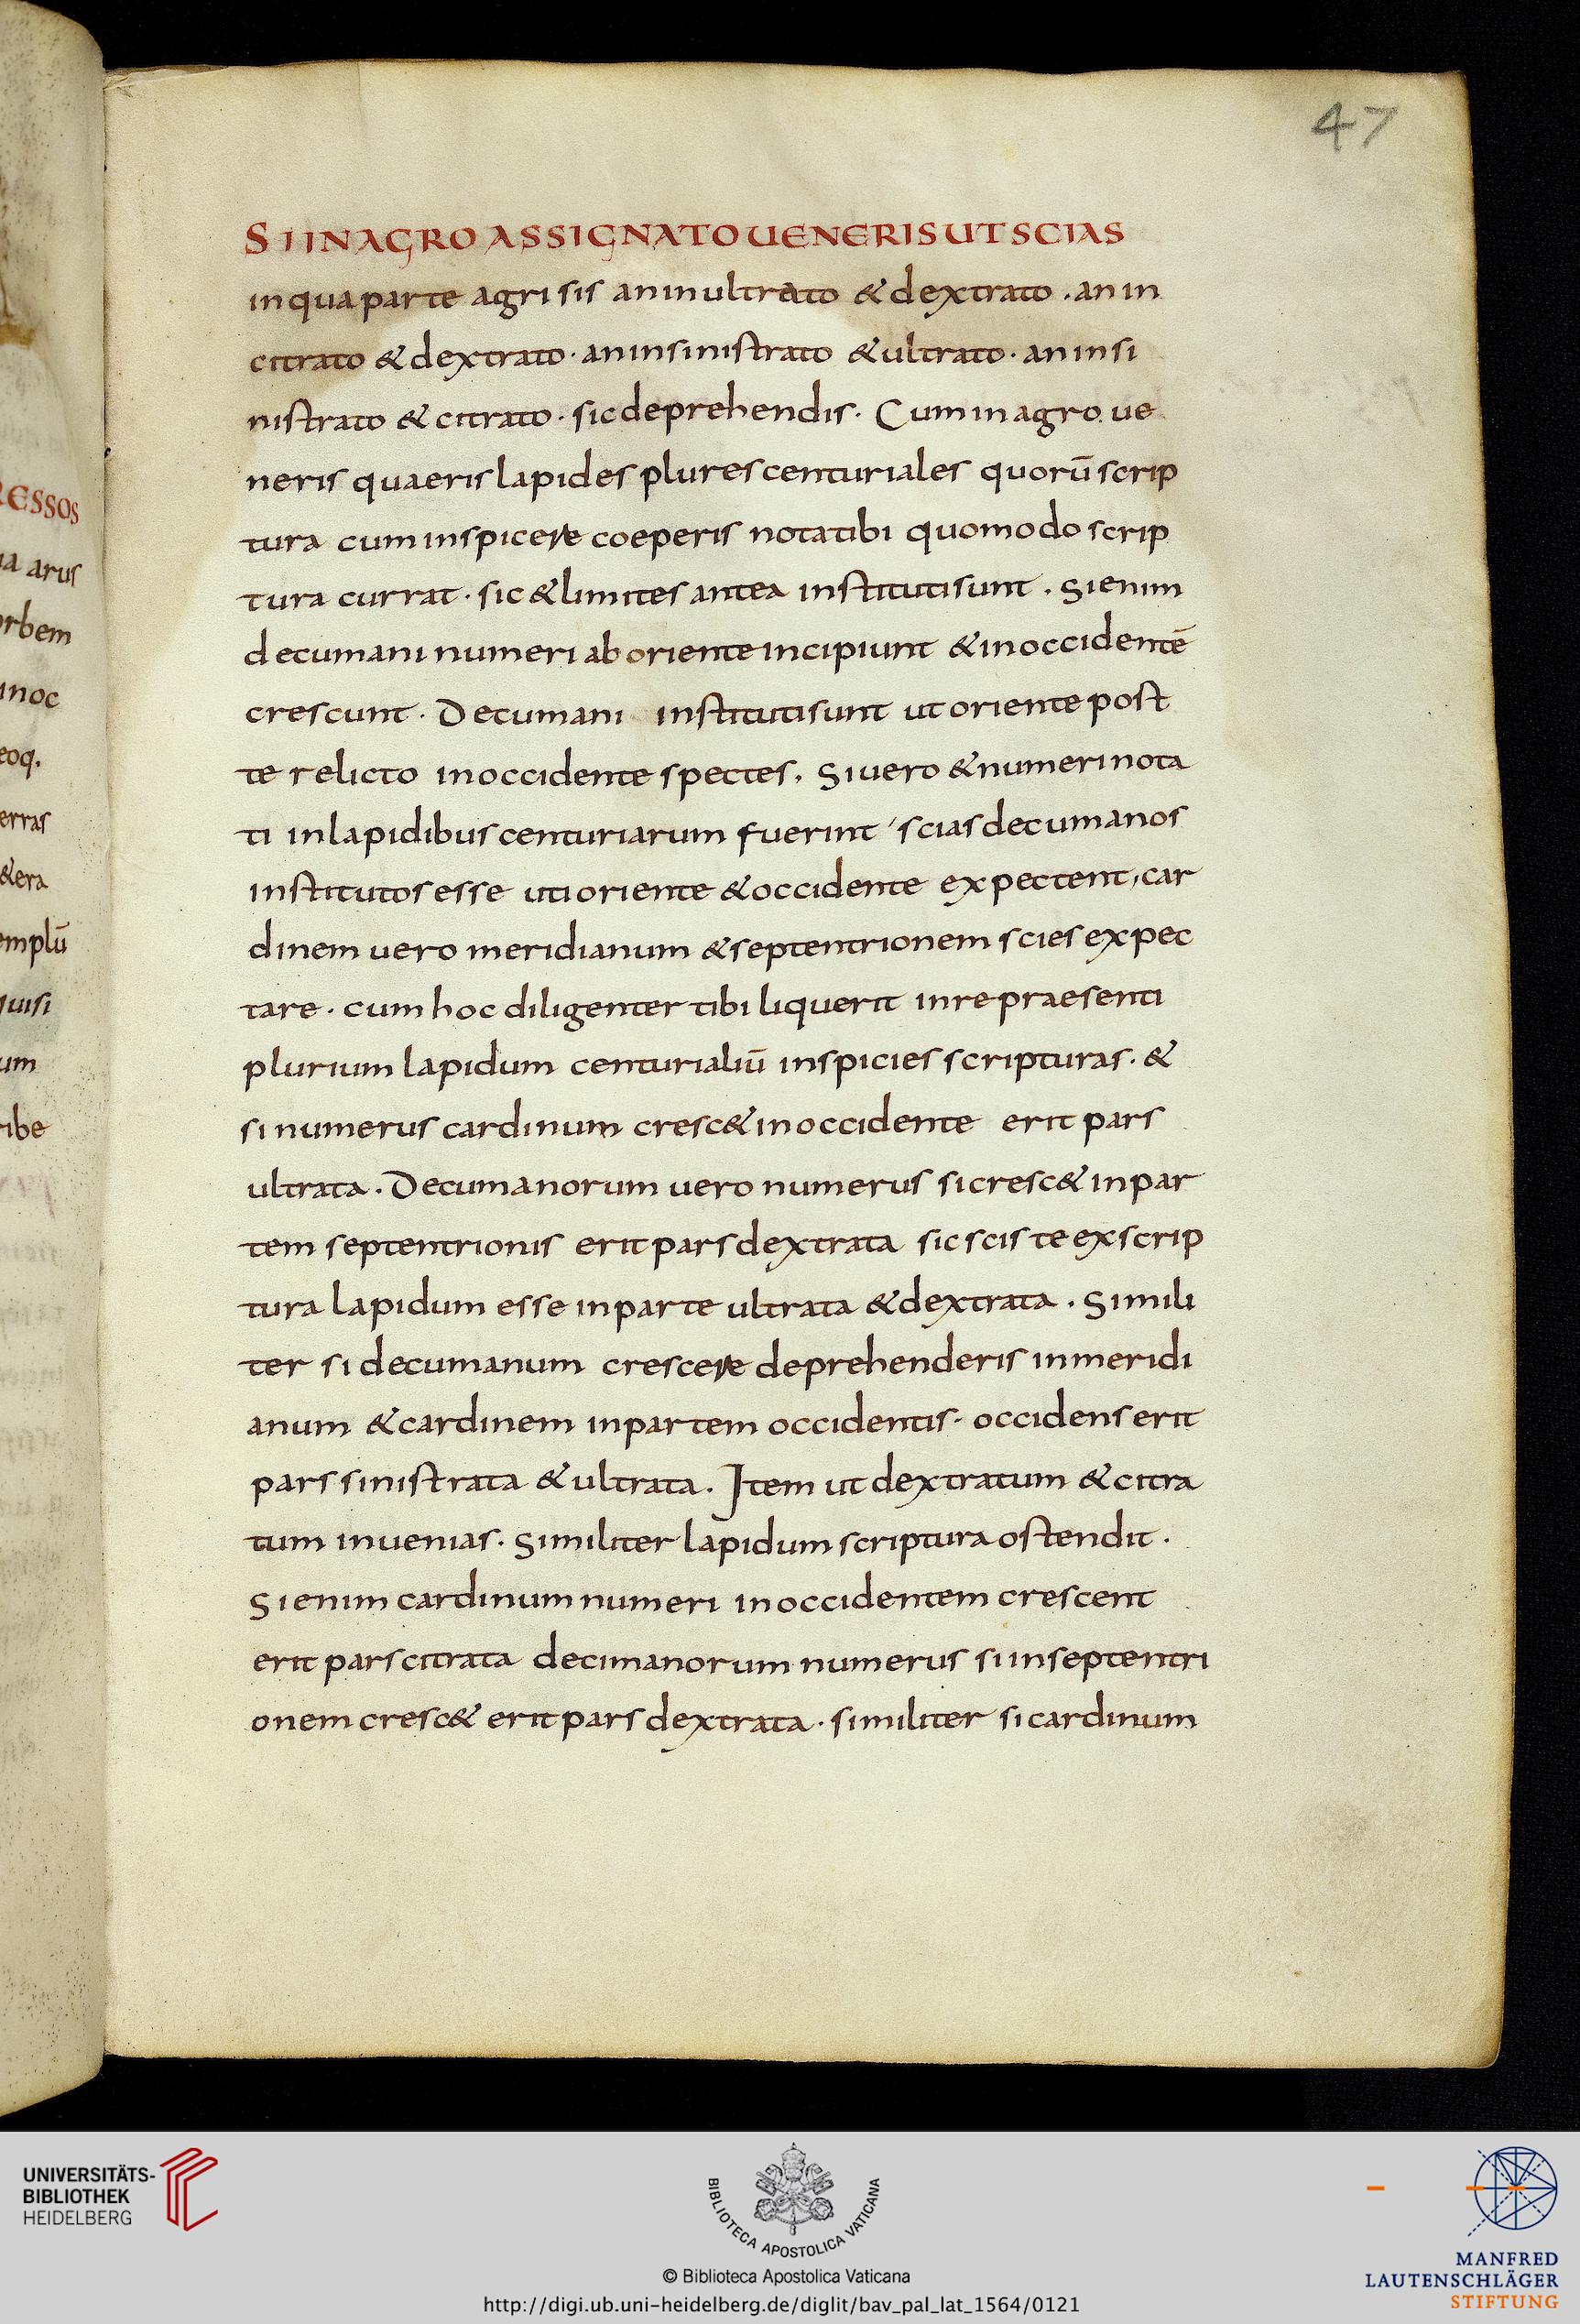 47
SI IN AGRO ASSIGNATO UENERIS UT SCIAS
in qua parte agri sis an in ultrato & dextrato . an in
citrato & dextrato · an in sinistrato & ultrato · an in si
nistrato & citrato · sic deprehendis · Cum in agro ue
neris quaeris lapides plures centuriales quorū scrip
tura cum inspicere coeperis nota tibi quomodo scrip
tura currat · sic & limites antea instituti sunt . Si enim
decumani numeri ab oriente incipiunt & in occidentē
crescunt · Decumani instituti sunt ut oriente post
te relicto in occidente spectes . Si uero & numeri nota
ti in lapidibus centuriarum fuerint ' scias decumanos
institutos esse uti oriente & occidente expectent, car
dinem uero meridianum & septentrionem scies expec
tare · cum hoc diligenter tibi liquerit in re praesenti
plurium lapidum centurialiū inspicies scripturas · &
si numerus cardinum cresc& in occidente erit pars
ultrata . Decumanorum uero numerus si cresc& in par
tem septentrionis erit pars dextrata sic scis te ex scrip
tura lapidum esse in parte ultrata & dextrata . Simili
ter si decumanum crescere deprehenderis in meridi
anum & cardinem in partem occidentis · occidens erit
pars sinistrata & ultrata . Item ut dextratum & citra
tum inuenias . Similiter lapidum scriptura ostendit .
Si enim cardinum numeri in occidentem crescent
erit pars citrata decimanorum numerus si in septentri
onem cresc& erit pars dextrata · similiter si cardinum
RESSOS
arus
orbem
inoc
eoq.
erras
&era
emplū
quisi
um
ribe
UNIVERSITÄTS-
BIBLIOTHEK
HEIDELBERG
BIBLIOTECA APOSTOLICA VATICANA
© Biblioteca Apostolica Vaticana
http://digi.ub.uni-heidelberg.de/diglit/bav_pal_lat_1564/0121
MANFRED
LAUTENSCHLÄGER
STIFTUNG